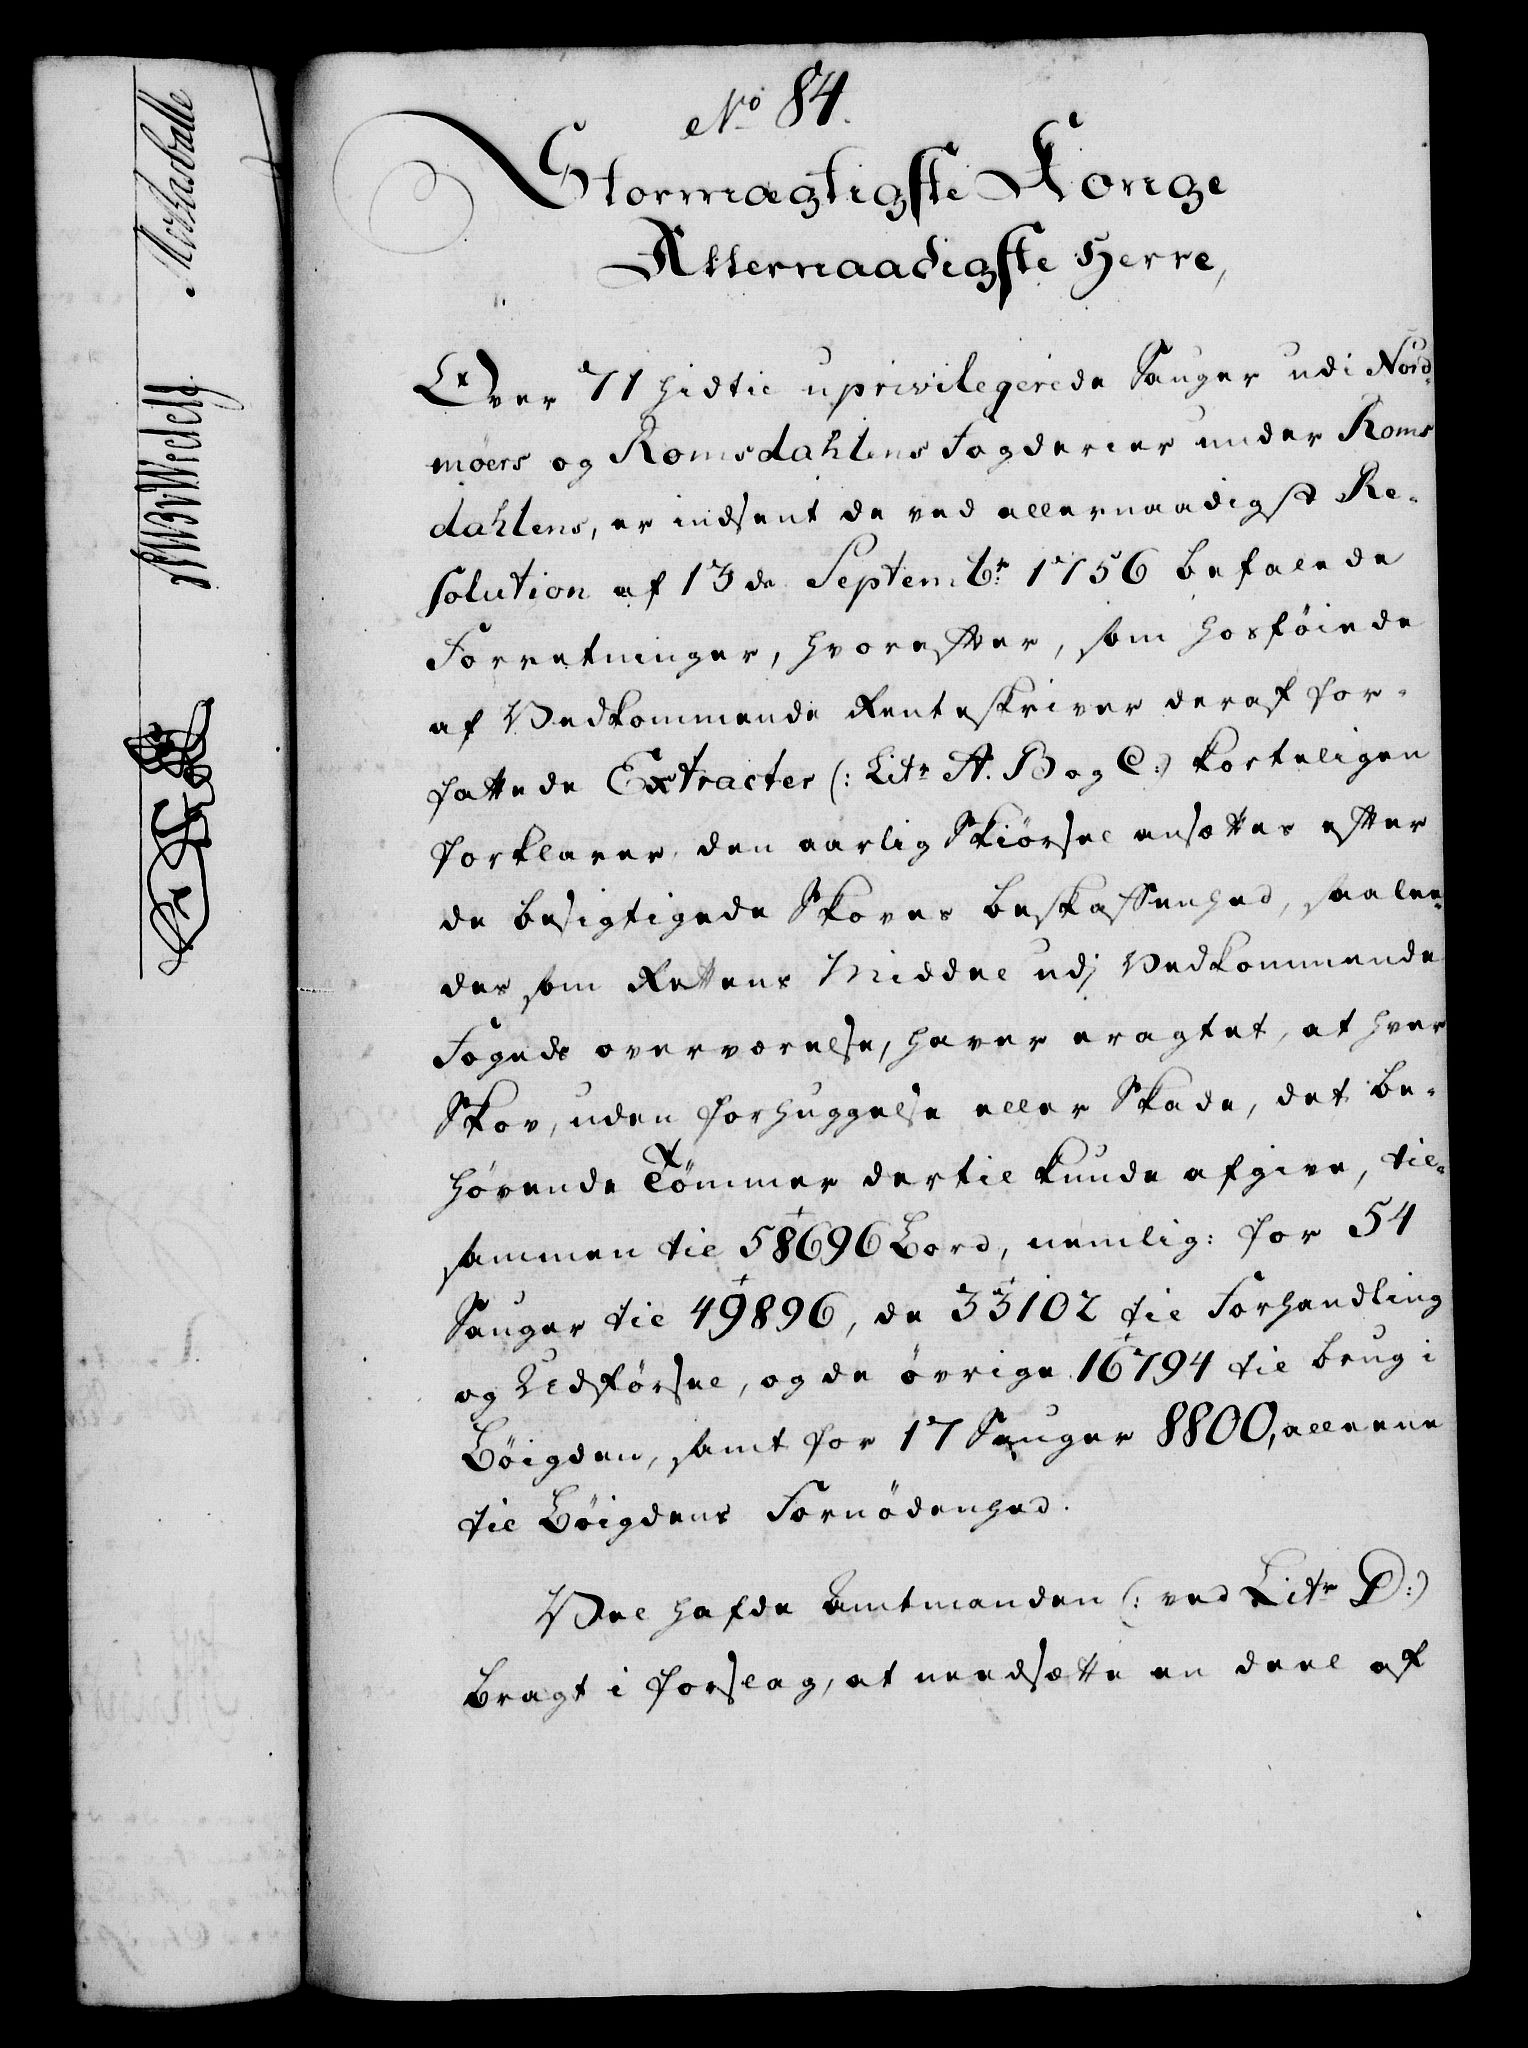 No 84.
Stormægtigste Konge
Allernaadigste Herre,
Over 71 hidtil uprivilegerede Sauger udi Nord-
möers og Romsdahlens Fogderier under Roms
dahlens, er indsent de ved allernaadigst Re-
solution af 13de Septembr: 1756 befalede
Forretninger, hvorefter, som hosföiede
af Vedkommende Renteskriver deraf for-
fattede Extracter (: Litr A. B og C:) korteligen
forklarer, den aarlig Skiørsel ansættes efter
de besigtigede Skoves beskaffenhed, saalee-
des som Rettens Middel udj Vedkommende
Fogeds overværelse, haver eragtet, at hver
Skov, uden forhuggelse eller Skade, det be-
hövende Tömmer dertil kunde afgive, til-
sammen til 58696 Bord, nemlig: for 54
Sauger til 49896, de 33102 til Forhandling
og Udförsel, og de övrige 16794 til brug i
Böigden, samt for 17 Sauger 8800, alleene
til Böigdens Fornödenhed.
Vel hafde Amtmanden (: ved Litr D:)
bragt i forslag, at needsætte en deel af